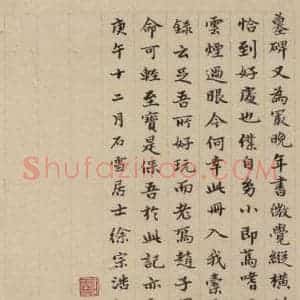 墓碑又為㝡晚年書微覺縱橫
恰到好處也僕自小即篤嗜
雲煙過眼今何幸此冊入我橐
錄云足吾所好玩而老焉趙子
命可輕至寶是保吾於此記亦
庚午十二月石雪居士徐宗浩
Shufaziliao.com